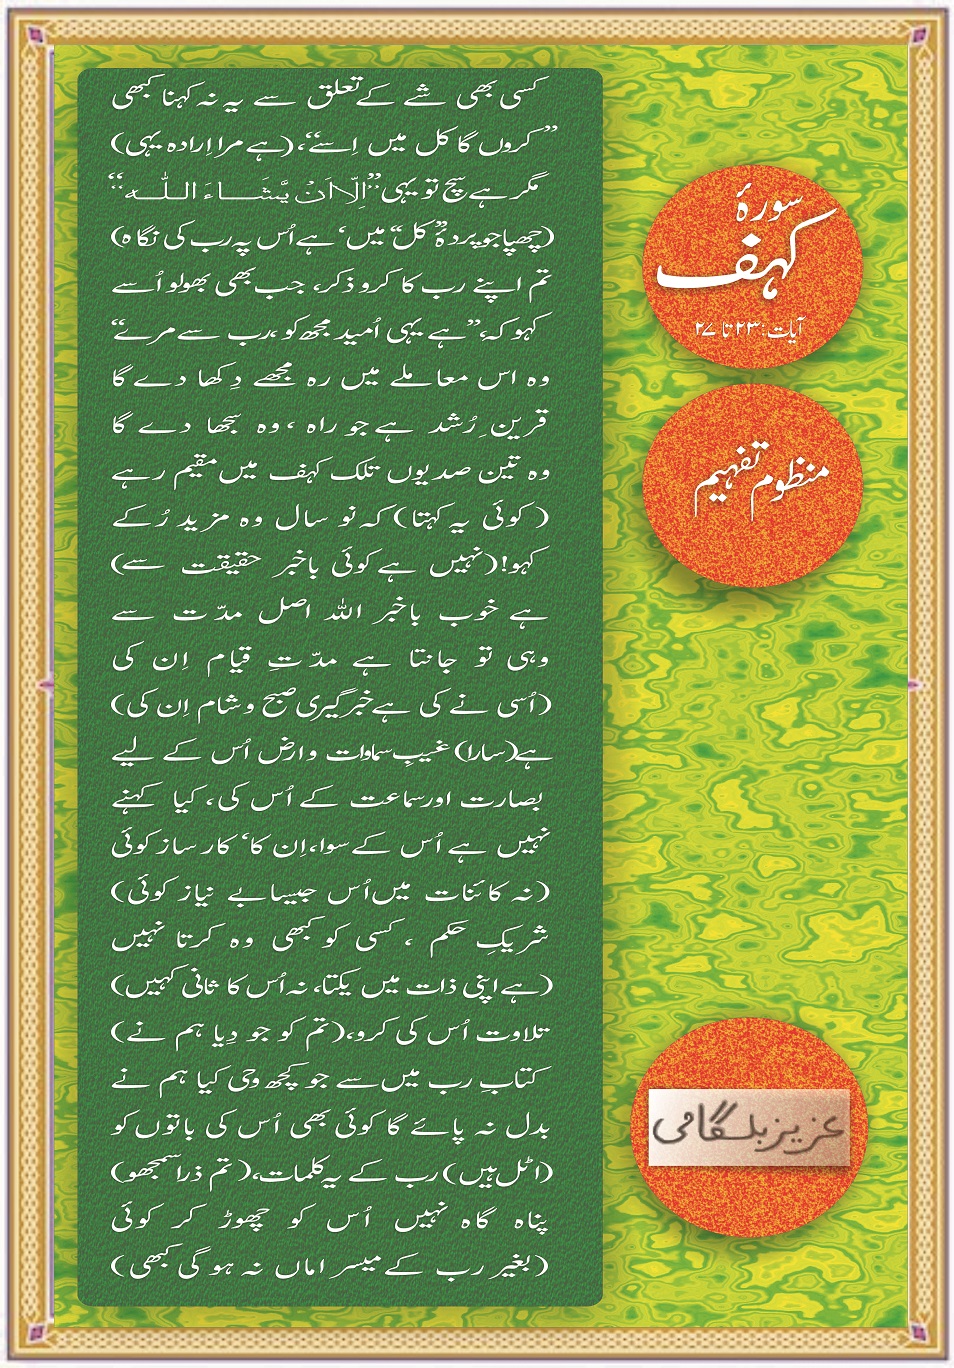 سورۂ
کہف
آیات: ۲۳ تا ۲۷
منظوم تفہیم
کسی بھی شے کے تعلق سے یہ نہ کہنا کبھی
”کروں گا کل میں اِسے“، (ہے مرا اِرادہ یہی)
مگر ہے سچ تو یہی ”اِلَّا اَنْ یَّشَاءَ اللہ“
(چھپا جو پردۂ ”کل“ میں‘ ہے اُس پہ رب کی نگاہ)
تم اپنے رب کا کرو ذکر، جب بھی بھولو اُسے
کہو کہ، ”ہے یہی اُمید مجھ کو، رب سے مرے“
وہ اس معاملے میں رہ مجھے دِکھا دے گا
قرینِ رُشد ہے جو راہ ، وہ سجھا دے گا
وہ تین صدیوں تلک کہف میں مقیم رہے
(کوئی یہ کہتا) کہ نو سال وہ مزید رُکے
کہو! (نہیں ہے کوئی باخبر حقیقت سے)
ہے خوب باخبر اللہ اصل مدّت سے
وہی تو جانتا ہے مدّتِ قیام اِن کی
(اُسی نے کی ہے خبر گیری صبح و شام اِن کی)
ہے (سارا) غیبِ سماوات و ارض اُس کے لیے
بصارت اور سماعت کے اُس کی، کیا کہنے
نہیں ہے اُس کے سوا، اِن کا‘ کار ساز کوئی
(نہ کائنات میں اُس جیسا بے نیاز کوئی)
شریکِ حکم ، کسی کو کبھی وہ کرتا نہیں
(ہے اپنی ذات میں یکتا، نہ اُس کا ثانی کہیں)
تلاوت اُس کی کرو، (تم کو جو دِیا ہم نے)
کتابِ رب میں سے جو کچھ وحی کیا ہم نے
بدل نہ پائے گا کوئی بھی اُس کی باتوں کو
(اٹل ہیں) رب کے یہ کلمات، (تم ذرا سمجھو)
پناہ گاہ نہیں اُس کو چھوڑ کر کوئی
(بغیر رب کے میسر اماں نہ ہو گی کبھی)
عزیز بلگامی